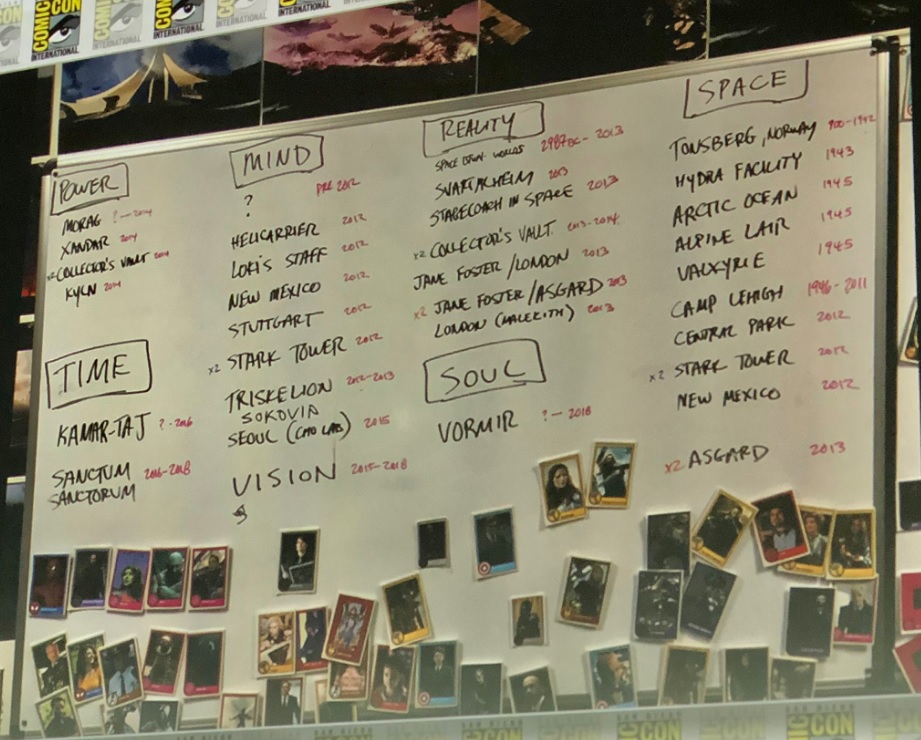 COMIC CON INTERNATIONAL
POWER
MORAG ? — 2014
XANDAR 2014
x2 COLLECTOR'S VAULT 2014
KYLN 2014
TIME
KAMAR-TAJ ? - 2016
SANCTUM 2016-2018
SANCTORUM
MIND
? PRE 2012
HELICARRIER 2012
LOKI'S STAFF 2012
NEW MEXICO 2012
STUTTGART 2012
x2 STARK TOWER 2012
TRISKELION 2012-2013
SOKOVIA
SEOUL (CHO LAB) 2015
VISION 2015-2018
REALITY
SPACE BTWN WORLDS 2987BC - 2013
SVARTALHEIM 2013
STAGECOACH IN SPACE 2013
x2 COLLECTOR'S VAULT 2013-2014
JANE FOSTER/LONDON 2013
x2 JANE FOSTER/ASGARD 2013
LONDON (MALEKITH) 2013
SOUL
VORMIR ? — 2018
SPACE
TONSBERG, NORWAY 900-1942
HYDRA FACILITY 1943
ARCTIC OCEAN 1945
ALPINE LAIR 1945
VALKYRIE 1945
CAMP LEHIGH 1946-2011
CENTRAL PARK 2012
x2 STARK TOWER 2012
NEW MEXICO 2012
x2 ASGARD 2013
SAN DIEGO
COMIC CON